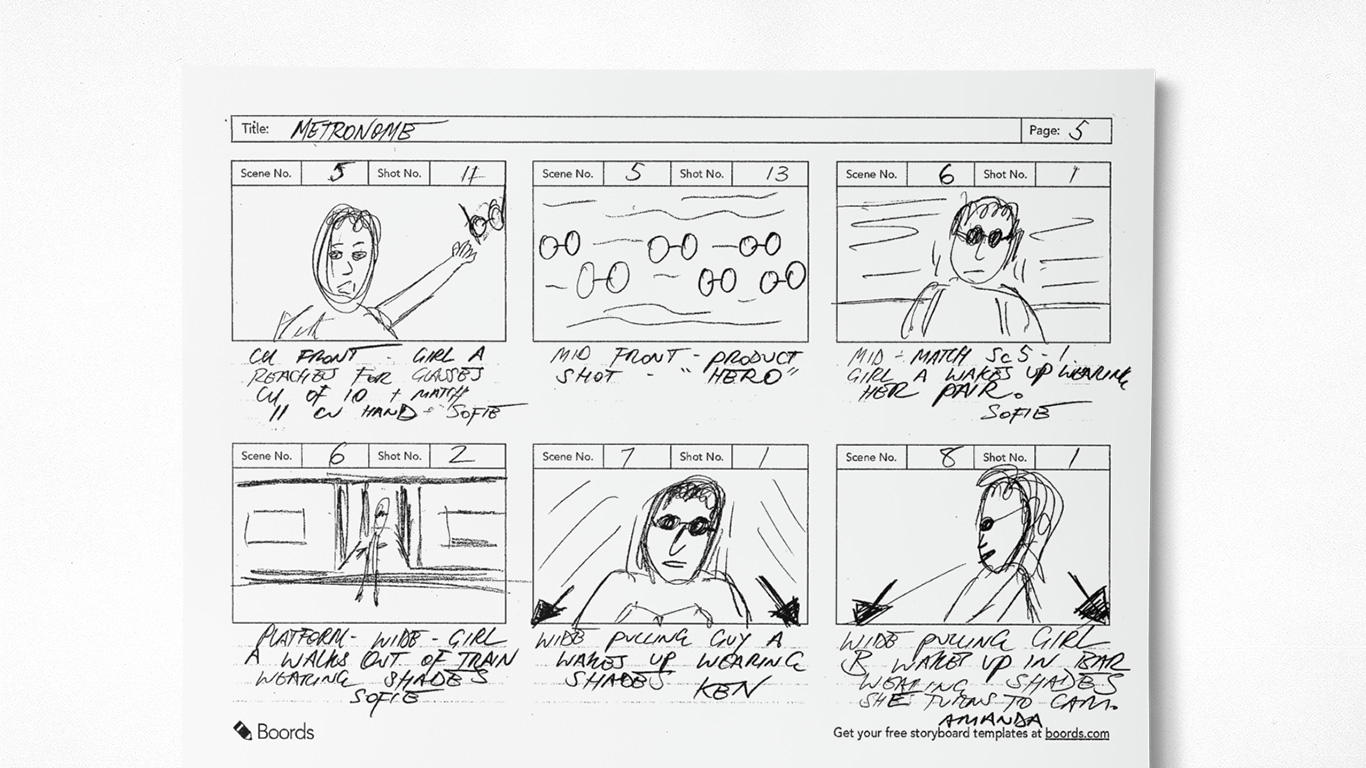 Title: METRONOME Page: 5
Scene No. 5 Shot No. 11
CU FRONT - GIRL A
REACHES FOR GLASSES
CU OF 10 + MATCH
11 CU HAND - SOFIE
Scene No. 5 Shot No. 13
MID FRONT - PRODUCT
SHOT - "HERO"
Scene No. 6 Shot No. 1
MID - MATCH Sc 5 - 1
GIRL A WAKES UP WEARING
HER PAIR.
SOFIE
Scene No. 6 Shot No. 2
PLATFORM - WIDE - GIRL
A WALKS OUT OF TRAIN
WEARING SHADES
SOFIE
Scene No. 7 Shot No. 1
WIDE PULLING GUY A
WAKES UP WEARING
SHADES KEN
Scene No. 8 Shot No. 1
WIDE PULLING GIRL
B WAKES UP IN BAR
WEARING SHADES
SHE TURNS TO CAM.
AMANDA
Boords
Get your free storyboard templates at boords.com